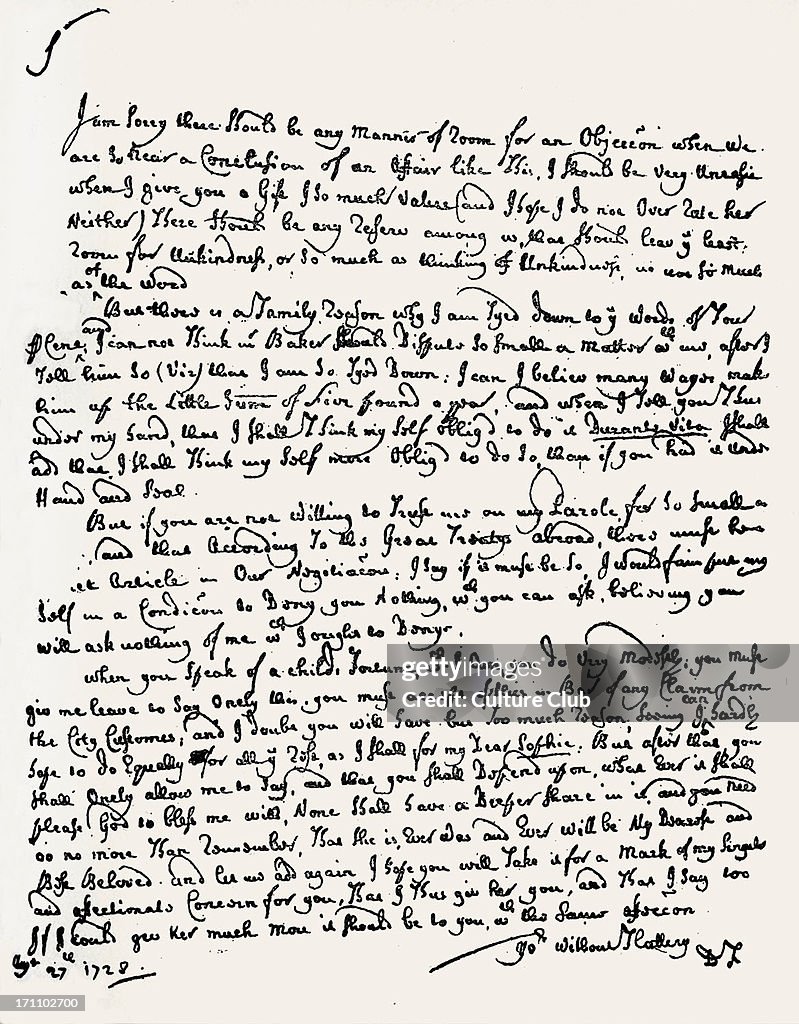 S
I am Sorry there Should be any Manner of room for an Objeccon when we
are So Near a Conclusion of an Affair like This, I should be very Uneasie
when I give you a Gift I So much Value (and I hope I do not Over Rate her
Neither) There Should be any reserv among us, that Should leav ye least
Room for Unkindness, or So much as thinking of Unkindness, no not So Much
as of the word
But there is a Family reason why I am Tyed down to ye Words of Four
℔ Cent, and I can not Think Mr Baker Should Dispute So Small a Matter wth me, after I
Tell him So (Viz) that I am So Tyed Down: I can I believ many wayes make
him up the Little Sume of Five pound a year, and when I Tell you Thus
under my hand, that I shall Think my Self obligd to do it Durante Vita I shall
add that I shall Think my Self more Obligd to do So, than if you had it under
Hand and Seal.
But if you are not Willing to Trust me on my Parole for So Small a
and that According To the Great Treatys abroad, there must be a
et Article in Our Negotiacon: I Say if it must be So, I would fain put my
Self in a Condicon to Deny you Nothing, wch you can ask, believing you
will ask nothing of me wch I ought to Denye.
when you Speak of a childs Fortune Very Modestly: you must
giv me leave to Say Onely this, you must in Bar of any Claim from
the City Customes; and I doubt you will have but too much Reason, Seeing I can hardly
hope to do Equally for all ye rest, as I shall for my Dear Sophie: But after that, you
shall Onely allow me to Say, and that you shall Depend upon, what Ever it shall
please God to bless me with, None shall have a Deeper Share in it, and you need
do no more Than remember, That she is, Ever Was and Ever will be My Dearest and
Best Beloved. and let me add again I hope you will Take it for a Mark of my Singular
and affectionate Concern for you, That I Thus giv her you, and That I Say too
If I could giv her much more it should be to you, wth the Same affeccon
Yor without Flattery
27th 1728.
DF
gettyimages
Credit: Culture Club
171102700